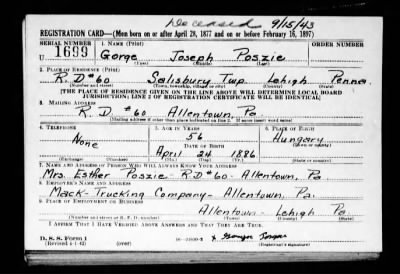 Deceased 9/15/43
REGISTRATION CARD—(Men born on or after April 28, 1877 and on or before February 16, 1897)
SERIAL NUMBER 1. NAME (Print) ORDER NUMBER
U 1699 Gorge Joseph Poszie
(First) (Middle) (Last)
2. PLACE OF RESIDENCE (Print)
R.D #60 Salisbury Twp. Lehigh Penna.
(Number and street) (Town, township, village, or city) (County) (State)
[THE PLACE OF RESIDENCE GIVEN ON THE LINE ABOVE WILL DETERMINE LOCAL BOARD
JURISDICTION; LINE 2 OF REGISTRATION CERTIFICATE WILL BE IDENTICAL]
3. MAILING ADDRESS
R. D. #60 Allentown, Pa.
[Mailing address if other than place indicated on line 2. If same insert word same]
4. TELEPHONE 5. AGE IN YEARS 6. PLACE OF BIRTH
56
None DATE OF BIRTH Hungary
(Town or county)
April 24 1886
(Exchange) (Number) (Mo.) (Day) (Yr.) (State or country)
7. NAME AND ADDRESS OF PERSON WHO WILL ALWAYS KNOW YOUR ADDRESS
Mrs. Esther Poszie - R.D #60 - Allentown, Pa.
8. EMPLOYER'S NAME AND ADDRESS
Mack - Trucking Company - Allentown, Pa.
9. PLACE OF EMPLOYMENT OR BUSINESS
Allentown - Lehigh Pa
(Number and street or R. F. D. number) (Town) (County) (State)
I AFFIRM THAT I HAVE VERIFIED ABOVE ANSWERS AND THAT THEY ARE TRUE.
D. S. S. Form 1
(Revised 4-1-42) (over) (Registrant's signature)